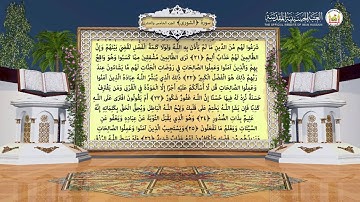 العتبة الحسينية المقدسة
THE OFFICIAL WEBSITE OF IMAM HUSSEIN
سورة ﴿ الشورى ﴾ الجزء الخامس والعشرون
شَرَعُوا لَهُم مِّنَ الدِّينِ مَا لَمْ يَأْذَن بِهِ اللَّهُ وَلَوْلَا كَلِمَةُ الْفَصْلِ لَقُضِيَ بَيْنَهُمْ وَإِنَّ
الظَّالِمِينَ لَهُمْ عَذَابٌ أَلِيمٌ ﴿٢١﴾ تَرَى الظَّالِمِينَ مُشْفِقِينَ مِمَّا كَسَبُوا وَهُوَ وَاقِعٌ
بِهِمْ وَالَّذِينَ آمَنُوا وَعَمِلُوا الصَّالِحَاتِ فِي رَوْضَاتِ الْجَنَّاتِ لَهُم مَّا يَشَاءُونَ عِندَ
رَبِّهِمْ ذَلِكَ هُوَ الْفَضْلُ الْكَبِيرُ ﴿٢٢﴾ ذَلِكَ الَّذِي يُبَشِّرُ اللَّهُ عِبَادَهُ الَّذِينَ آمَنُوا
وَعَمِلُوا الصَّالِحَاتِ قُل لَّا أَسْأَلُكُمْ عَلَيْهِ أَجْرًا إِلَّا الْمَوَدَّةَ فِي الْقُرْبَى وَمَن يَقْتَرِفْ
حَسَنَةً نَّزِدْ لَهُ فِيهَا حُسْنًا إِنَّ اللَّهَ غَفُورٌ شَكُورٌ ﴿٢٣﴾ أَمْ يَقُولُونَ افْتَرَى عَلَى اللَّهِ
كَذِبًا فَإِن يَشَإِ اللَّهُ يَخْتِمْ عَلَى قَلْبِكَ وَيَمْحُ اللَّهُ الْبَاطِلَ وَيُحِقُّ الْحَقَّ بِكَلِمَاتِهِ إِنَّهُ
عَلِيمٌ بِذَاتِ الصُّدُورِ ﴿٢٤﴾ وَهُوَ الَّذِي يَقْبَلُ التَّوْبَةَ عَنْ عِبَادِهِ وَيَعْفُو عَنِ
السَّيِّئَاتِ وَيَعْلَمُ مَا تَفْعَلُونَ ﴿٢٥﴾ وَيَسْتَجِيبُ الَّذِينَ آمَنُوا وَعَمِلُوا الصَّالِحَاتِ